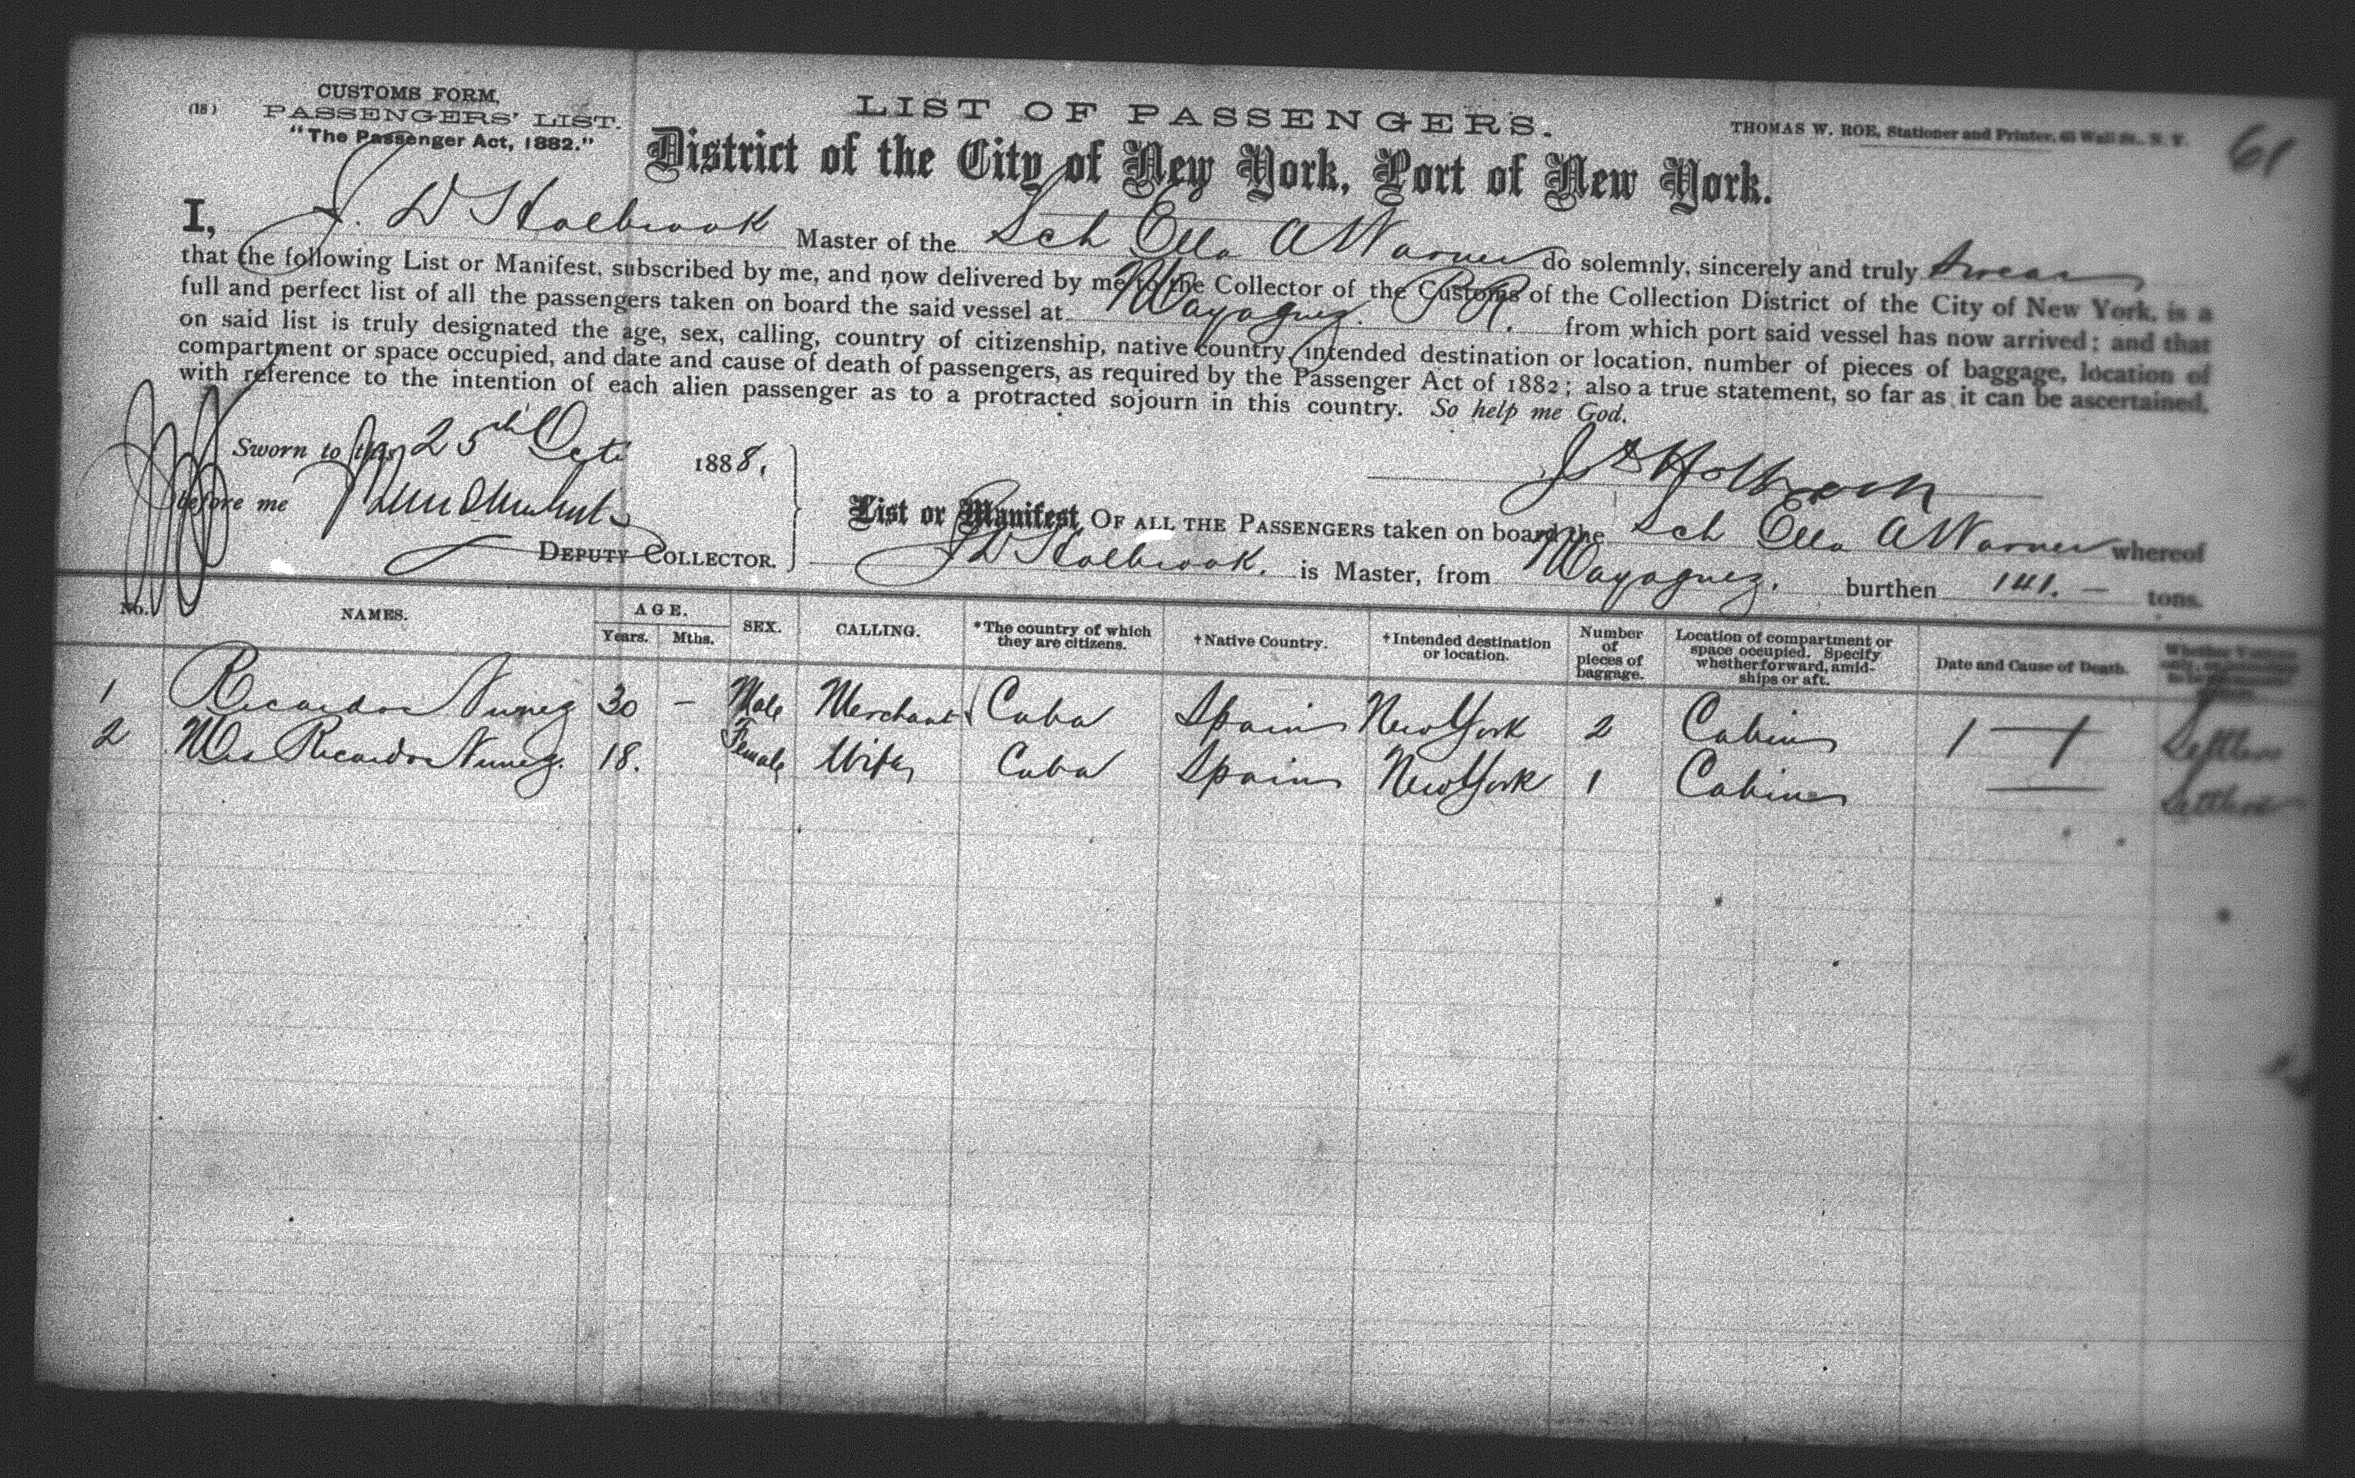 CUSTOMS FORM,
(18) PASSENGERS' LIST.
"The Passenger Act, 1882."
LIST OF PASSENGERS.
THOMAS W. ROE, Stationer and Printer, 65 Wall St., N. Y.
61
District of the City of New York, Port of New York.
I, J. D Holbrook Master of the Sch Ella A Warner do solemnly, sincerely and truly Swear
that the following List or Manifest, subscribed by me, and now delivered by me to the Collector of the Customs of the Collection District of the City of New York, is a
full and perfect list of all the passengers taken on board the said vessel at Mayaguez. P.R. from which port said vessel has now arrived; and that
on said list is truly designated the age, sex, calling, country of citizenship, native country, intended destination or location, number of pieces of baggage, location of
compartment or space occupied, and date and cause of death of passengers, as required by the Passenger Act of 1882; also a true statement, so far as it can be ascertained,
with reference to the intention of each alien passenger as to a protracted sojourn in this country. So help me God.
Sworn to this 25th Oct 1888.
J D Holbrook
before me
DEPUTY COLLECTOR.
List or Manifest OF ALL THE PASSENGERS taken on board the Sch Ella A Warner whereof
J D Holbrook. is Master, from Mayaguez. burthen 141. — tons.
No. NAMES. AGE. Years. Mths. SEX. CALLING. *The country of which they are citizens. †Native Country. †Intended destination or location. Number of pieces of baggage. Location of compartment or space occupied. Specify whether forward, amidships or aft. Date and Cause of Death.
1 Ricardo Nunez 30 — Male Merchant Cuba Spain New York 2 Cabin Settlers
2 Mrs Ricardo Nunez. 18. Female Wife Cuba Spain New York 1 Cabin — Settlers